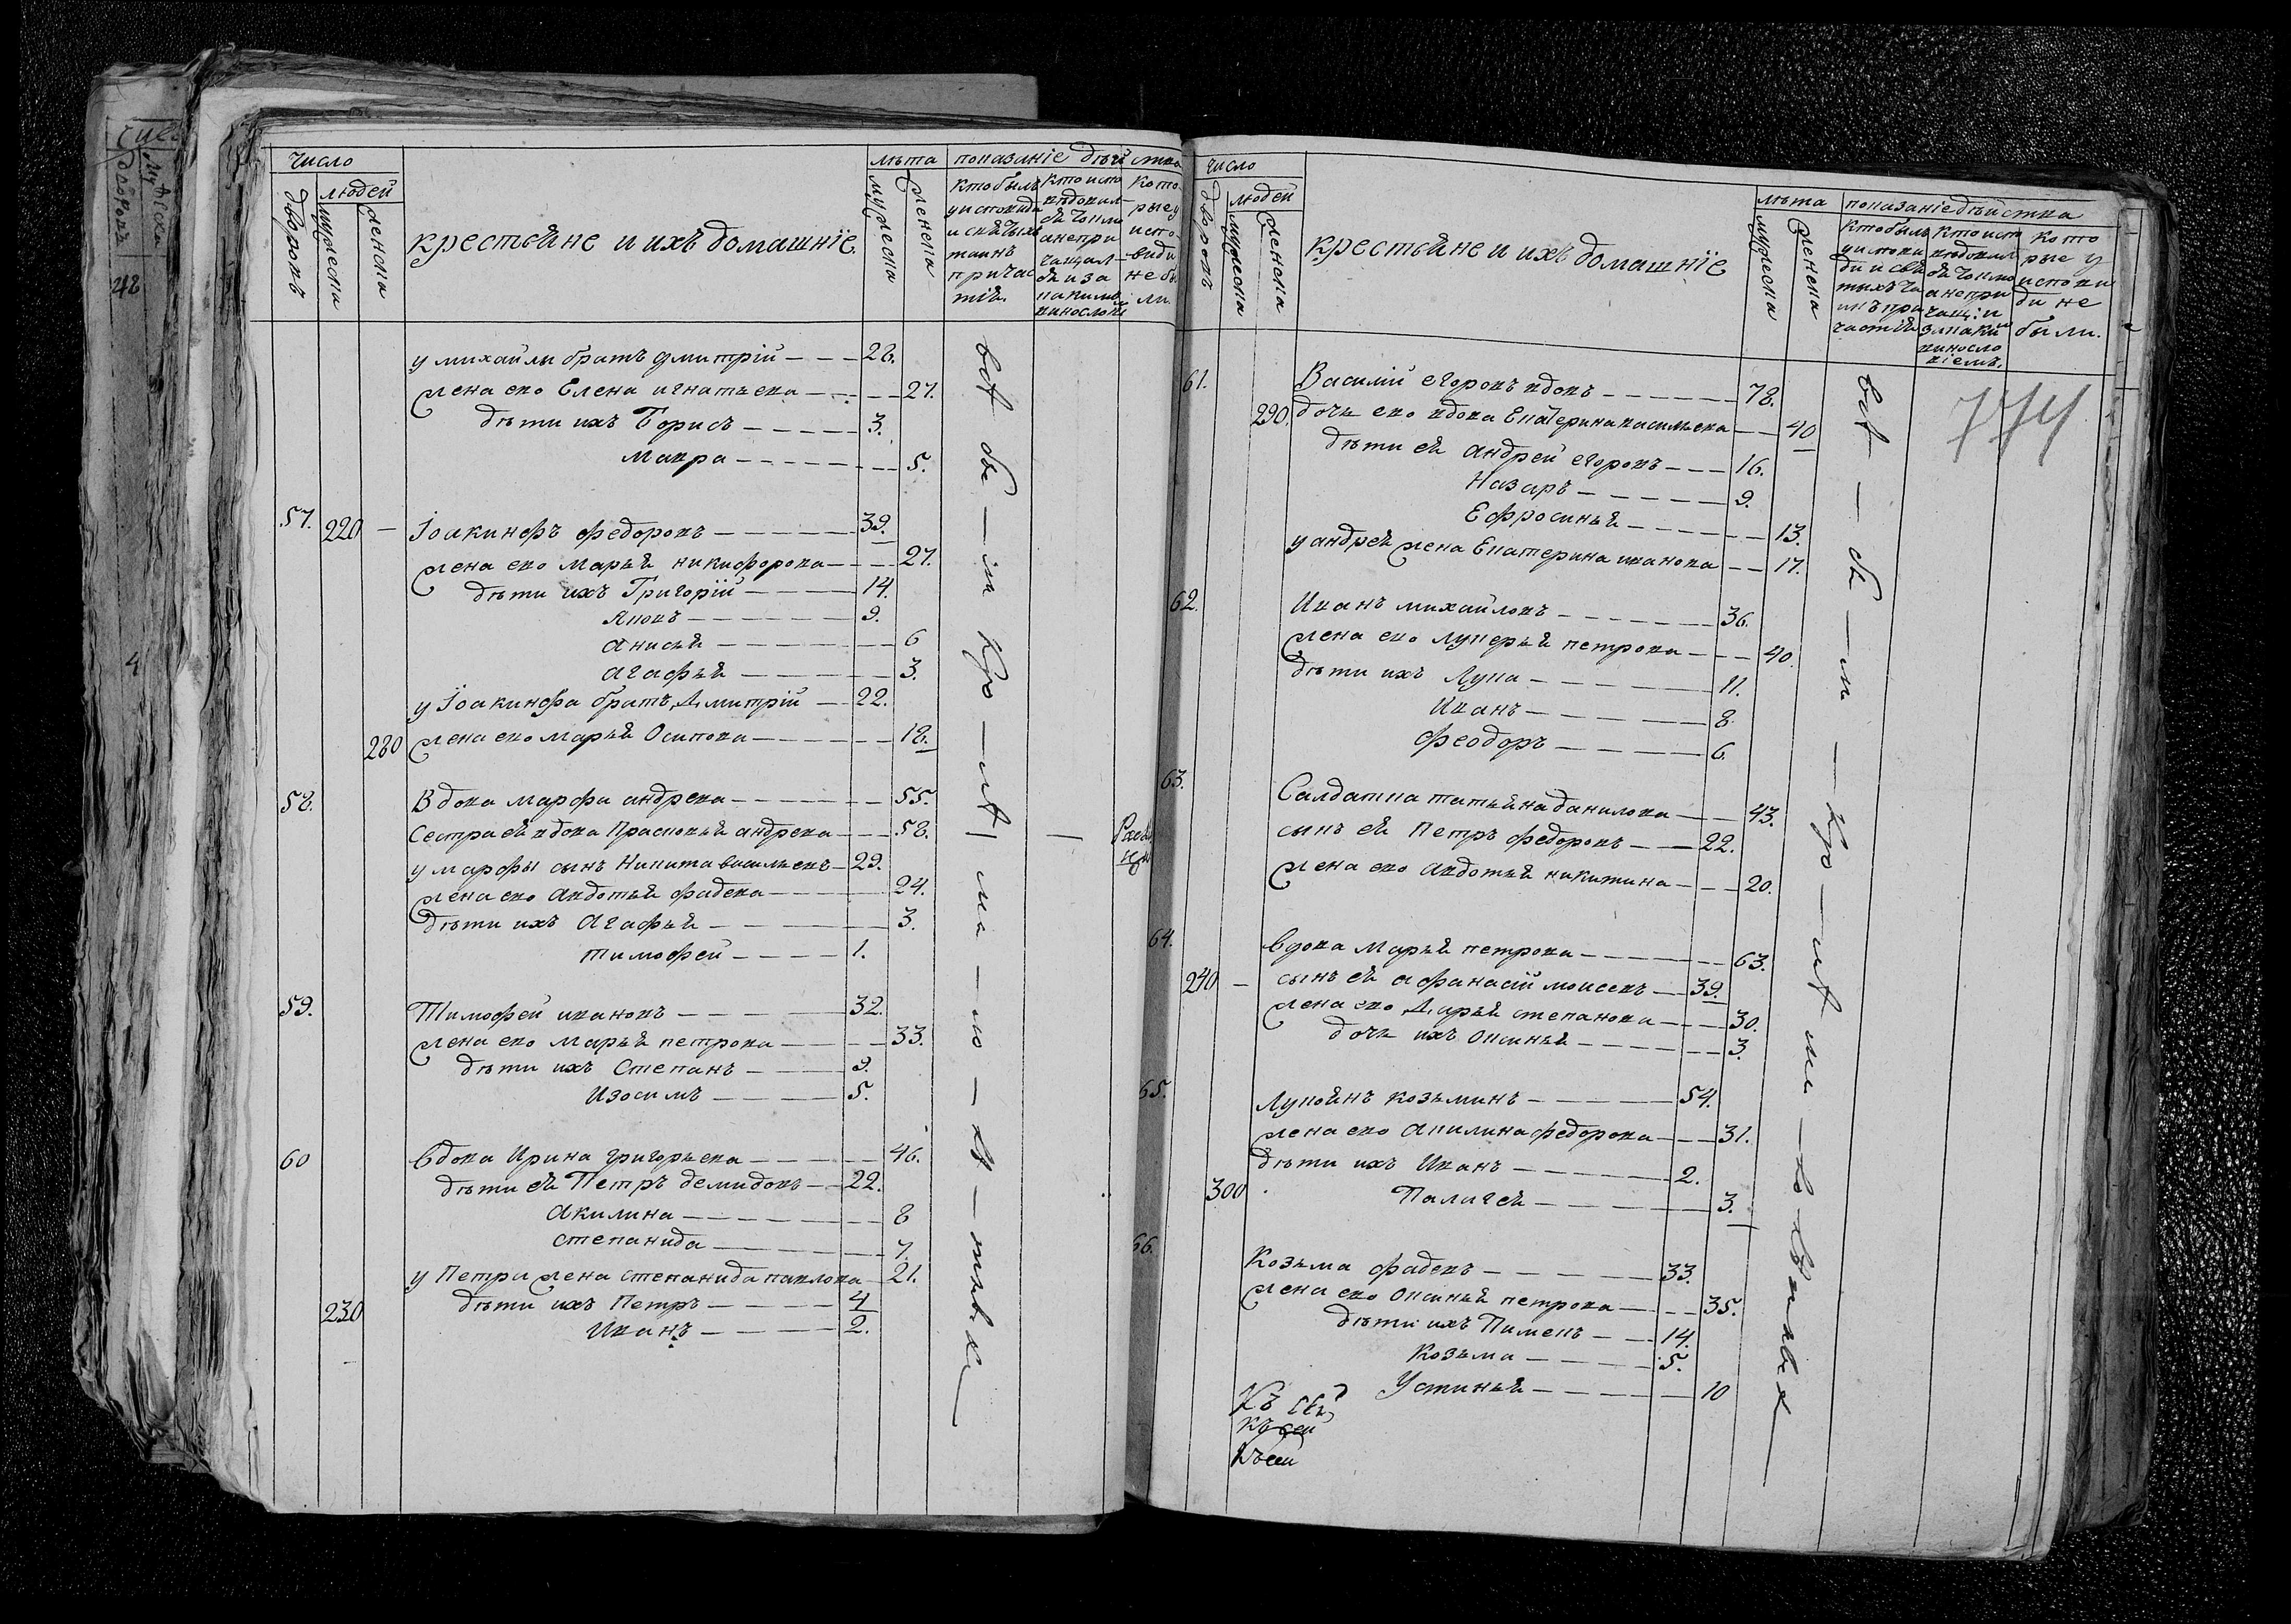 Число
дворовъ
людей
мужеска
женска
крестьяне и ихъ домашніе.
лѣта
мужеска
женска
показаніе дѣйства
кто былъ
у исповѣди
и святыхъ
таинъ
причас
тія.
кто испо
вѣдовал
ся токмо
а непри
чащал
ся и за
какимъ
винослові
кото
рые у
испо
вѣди
не бы
ли.
у михайлы братъ дмитрій — — — 28.
жена ево Елена игнатьева — — — 27.
дѣти ихъ Борисъ — — — 3.
Мавра — — — 5.
57. 220 — Іоакинфъ федоровъ — — — 39.
жена ево Марья никифорова — — — 27.
дѣти ихъ Григорій — — — 14.
Яковъ — — — 9.
анисья — — — 6
агафья — — — 3.
у Іоакинфа братъ Димитрій — 22.
280 жена ево Марья Осипова — — — 18.
58. Вдова марфа андрева — — — 55.
Сестра ея вдова Прасковья андрева — — — 58.
у марфы сынъ Никита васильевъ — 29.
жена ево авдотья фадева — — — 24.
дѣти ихъ Агафья — — — 3.
тимофей — — — 1.
59. Тимофей ивановъ — — — 32.
жена ево марья петрова — — — 33.
дѣти ихъ Степанъ — — — 9.
Изосимъ — — — 5.
60 вдова Ирина григорьева — — — 46.
дѣти ея Петръ демидовъ — — 22.
Акилина — — — 8
степанида — — — 7.
у Петра жена степанида павлова — 21.
230 дѣти ихъ Петръ — — — 4
Иванъ — — — 2.
всѣ
бы — ли
кро — мѣ
ма — ло — лѣ — тныхъ
число
дворовъ
людей
мужеска
женска
крестьяне и ихъ домашніе
лѣта
мужеска
женска
показаніе дѣйства
кто былъ
у испове
ди и свя
тыхъ та
инъ при
частія
кто исп
вѣдовал
ся токмо
а непри
чащ: и
за каким
виносло
віемъ.
кото
рые у
испове
ди не
были.
774
61. Василій егоровъ вдовъ — — — 78.
290. дочь ево вдова Екатерина васильева — — 40
дѣти ея андрей егоровъ — — — 16.
Назаръ — — — 9.
Ефросинья — — — 13.
у андрея жена Екатерина иванова — — 17.
62. Иванъ михайловъ — — — 36.
жена ево лукерья петрова — — — 40.
дѣти ихъ Лука — — — 11.
Иванъ — — — 8.
феодоръ — — — 6.
63. Салдатка татьяна данилова — — 43.
сынъ ея Петръ федоровъ — — 22.
жена ево авдотья никитина — — — 20.
64. вдова Марья петрова — — — 63.
240 — сынъ ея афанасій моисевъ — 39.
жена ево Дарья степанова — — — 30.
дочь ихъ Оксинья — — — 3.
65. Лукоянъ козьминъ — — — 54.
жена ево акилина федорова — — 31.
дѣти ихъ Иванъ — — — 2.
300 Палагея — — — 3.
66. Козьма фадевъ — — — 33.
жена ево Оксинья петрова — — — 35.
дѣти ихъ Пименъ — — 14.
Козьма — — — 5.
Устинья — — — 10
всѣ — бы — ли — кро — мѣ